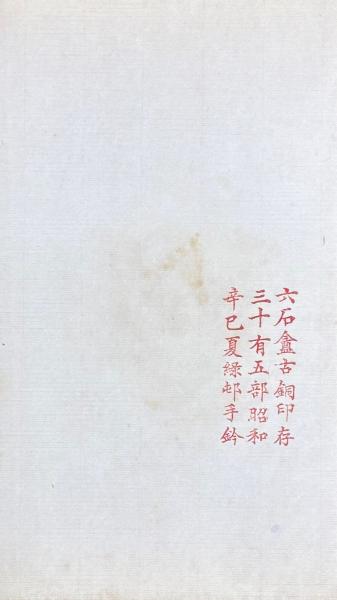 六石盦古銅印存
三十有五部昭和
辛巳夏綠邨手鈐